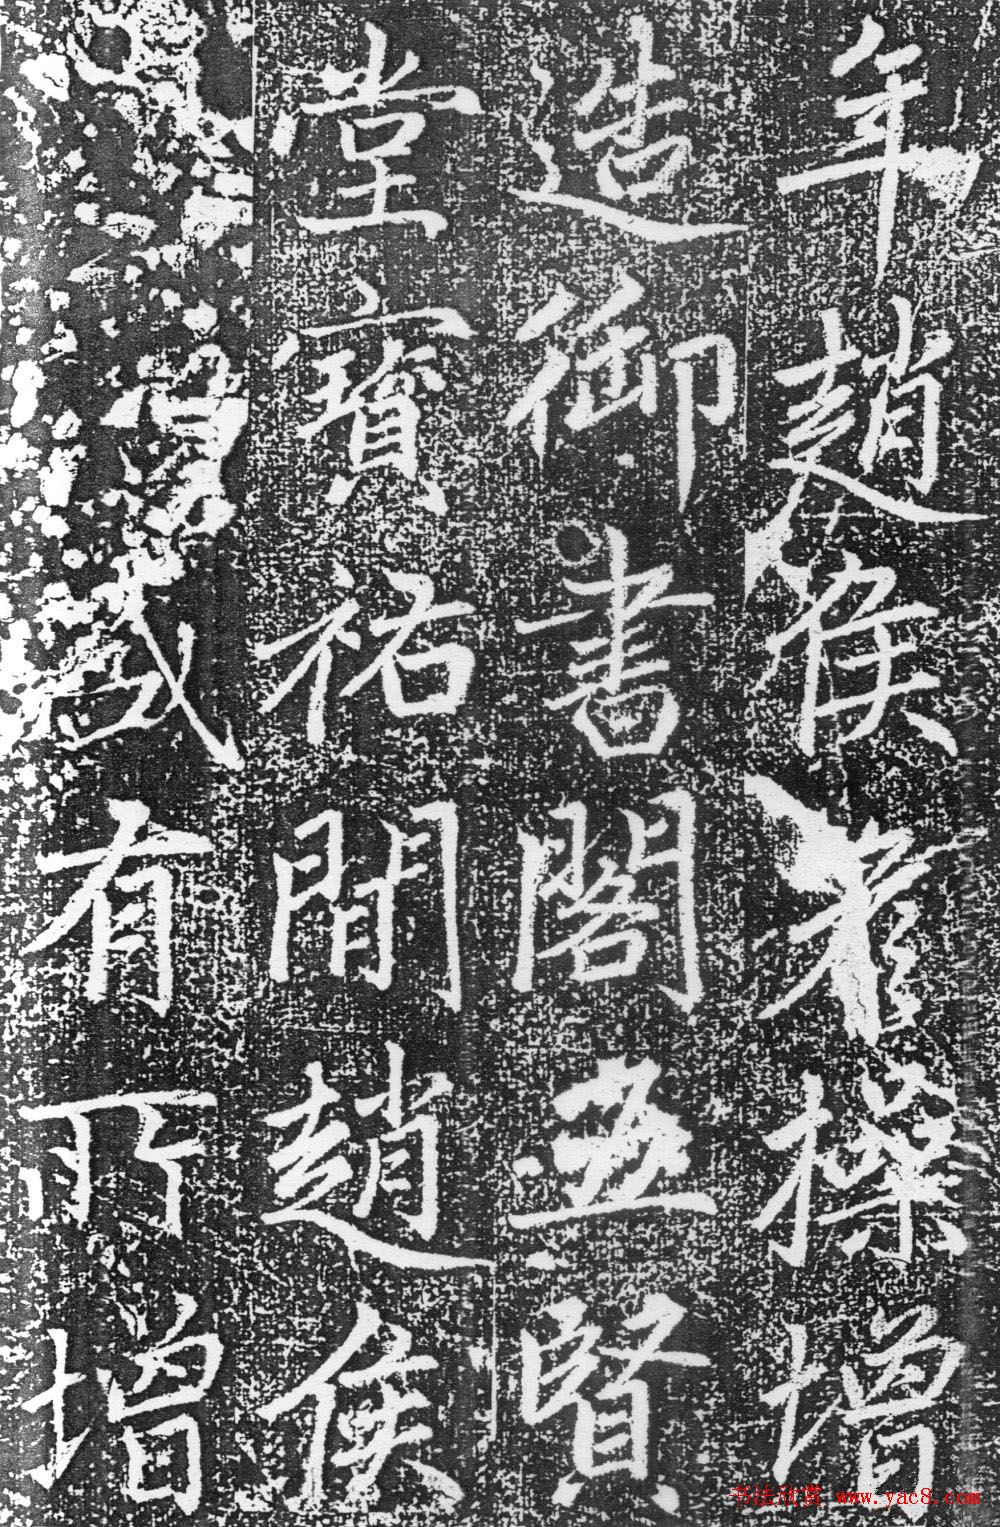 年趙侯彥操增
造御書閣五賢
堂寶祐間趙侯
咸有所增
書法欣赏 www.yac8.com